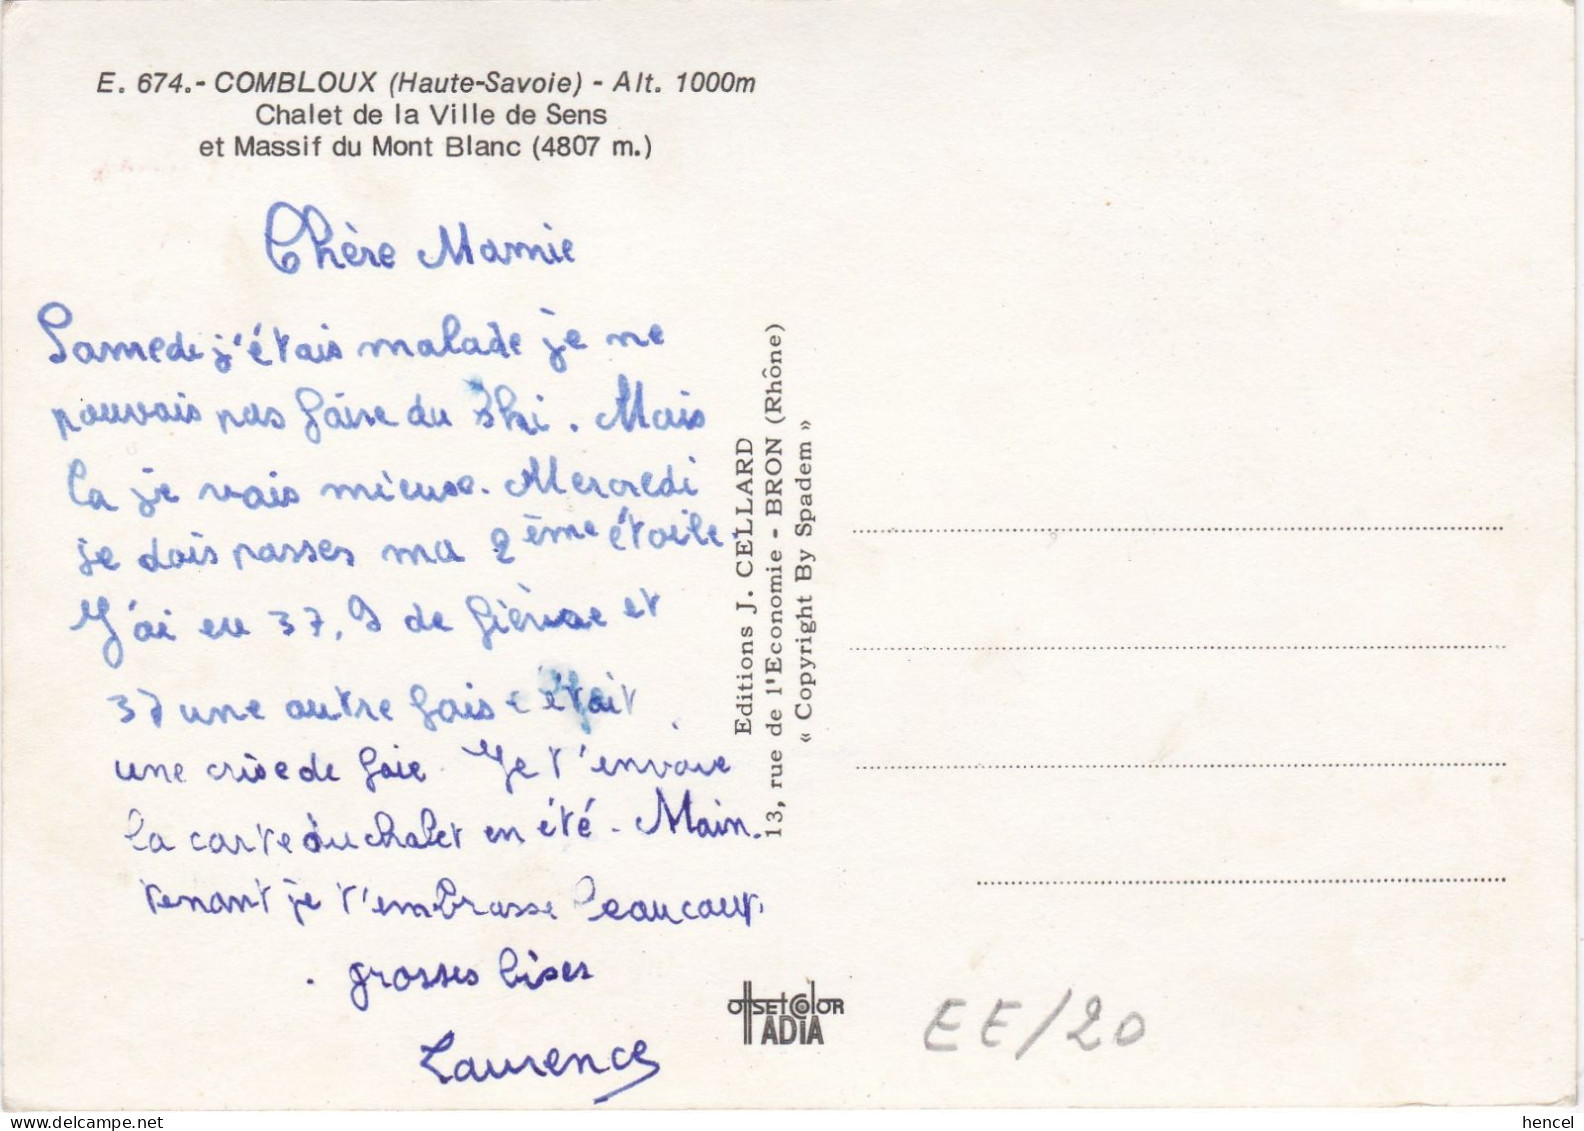 E. 674.- COMBLOUX (Haute-Savoie) - Alt. 1000m
Chalet de la Ville de Sens
et Massif du Mont Blanc (4807 m.)
Chère Mamie
Samedi j'étais malade je ne
pouvais pas faire du ski. Mais
la je vais mieux. Mercredi
je dois passer ma 2ème étoile.
J'ai eu 37,9 de fièvre et
37 une autre fois c'était
une crise de foie. Je t'envoie
la carte du chalet en été. Main.
tenant je t'embrasse beaucoup.
. grosses bises
Laurence
Editions J. CELLARD
13, rue de l'Economie - BRON (Rhône)
« Copyright By Spadem »
OffsetColor
ADIA
EE/20
hencel